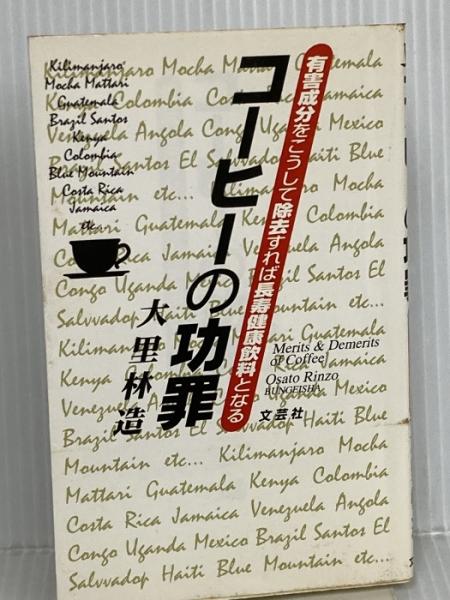 Kilimanjaro
Mocha Mattari
Guatemala
Brazil Santos
Kenya
Colombia
Blue Mountain
Costa Rica
Jamaica
etc
有害成分をこうして除去すれば長寿健康飲料となる
コーヒーの功罪
大里林造
Merits & Demerits
of Coffee
Osato Rinzo
BUNGEISHA
文芸社
Kilimanjaro Mocha
Colombia Jamaica
Venezuela Angola Uganda Mexico
Brazil Santos El Haiti Blue
Mountain etc... Mocha
Mattari Guatemala Colombia
Jamaica Angola
Congo Uganda Santos El
Salvvadop Haiti Mountain etc...
Mattari Guatemala
Kenya Rica Jamaica
Uganda Mexico
Brazil Santos Salvvadop Haiti Blue
Mountain etc... Kilimanjaro Mocha
Mattari Guatemala Kenya Colombia
Costa Rica Jamaica Venezuela Angola
Congo Uganda Mexico Brazil Santos El
Salvvadop Haiti Blue Mountain etc...